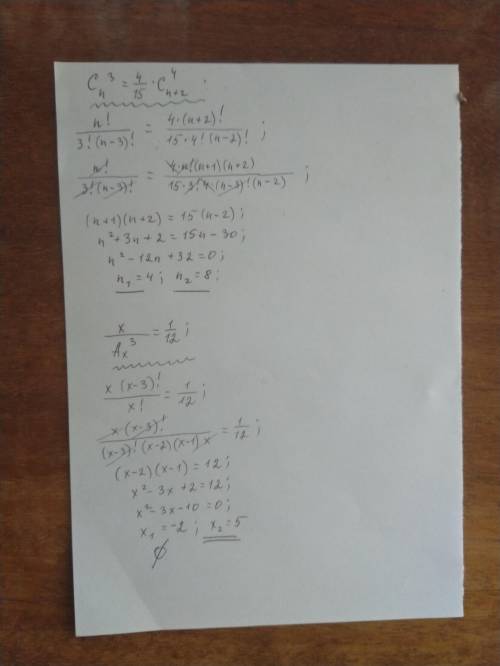 C_n^3 = 4/15 · C_{n+2}^4
n! / 3!(n-3)! = 4·(n+2)! / 15·4!(n-2)! ;
n! / 3!(n-3)! = 4·n!(n+1)(n+2) / 15·3!·4·(n-3)!(n-2) ;
(n+1)(n+2) = 15(n-2) ;
n² + 3n + 2 = 15n - 30 ;
n² - 12n + 32 = 0 ;
n₁ = 4 ; n₂ = 8 ;
x / A_x^3 = 1/12 ;
x (x-3)! / x! = 1/12 ;
x·(x-3)! / (x-3)!(x-2)(x-1)x = 1/12 ;
(x-2)(x-1) = 12 ;
x² - 3x + 2 = 12 ;
x² - 3x - 10 = 0 ;
x₁ = -2 ; x₂ = 5
∅